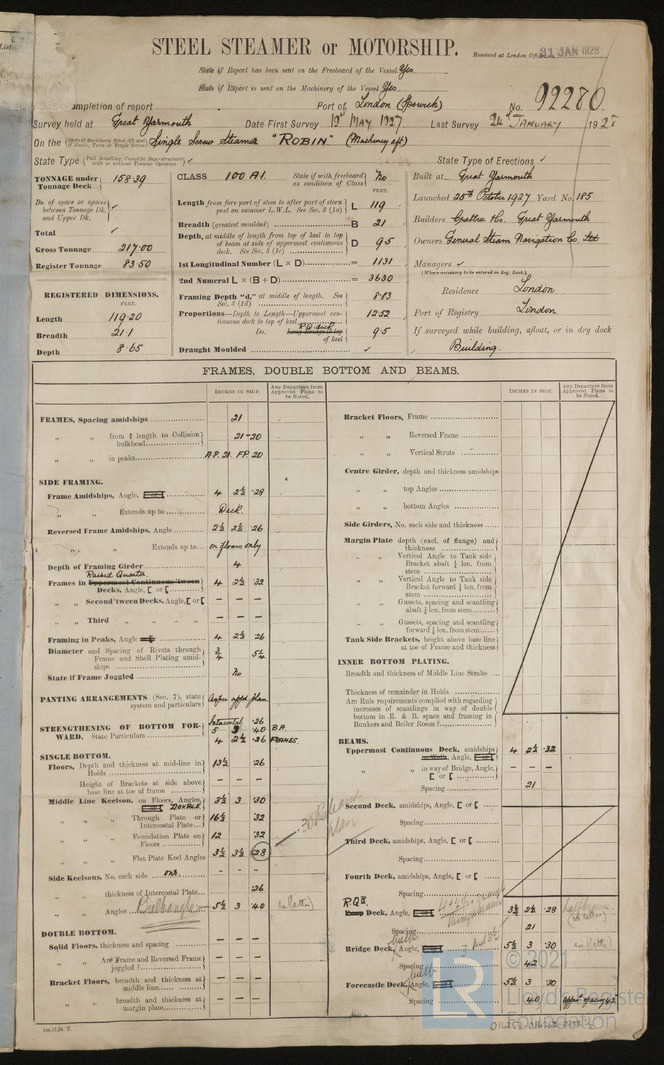 STEEL STEAMER or MOTORSHIP.
Received at London Office 31 JAN 1928
State if Report has been sent on the Freeboard of the Vessel Yes
State if Report is sent on the Machinery of the Vessel Yes
ompletion of report Port of London (Ipswich) No. 92280
Survey held at Great Yarmouth Date First Survey 19 MAY 1927 Last Survey 24 JANUARY 1928
On the Single Screw Steamer "ROBIN" (Machinery aft)
State Type State Type of Erections ✓
TONNAGE under Tonnage Deck 158.39
Do. of space or spaces between Tonnage Dk. and Upper Dk. ✓
Total ✓
Gross Tonnage 217.00
Register Tonnage 83.50
REGISTERED DIMENSIONS.
FEET.
Length 119.20
Breadth 21.1
Depth 8.65
CLASS 100 A1. State if with freeboard as condition of Class No
FEET.
Length from fore part of stem to after part of stern post on summer L.W.L. See Sec. 3 (1a) L 119
Breadth (greatest moulded) B 21
Depth, at middle of length from top of keel to top of beam at side of uppermost continuous deck. See Sec. 3 (1c) D 9.5
1st Longitudinal Number (L × D) = 1131
2nd Numeral L × (B + D) = 3630
Framing Depth "d," at middle of length. See Sec. 3 (1d) 8.83
Proportions—Depth to Length—Uppermost continuous deck to top of keel 12.52
Do. R.Q. deck Long Bridge to top of keel 9.5
Draught Moulded ✓
Built at Great Yarmouth
Launched 25th October 1927 Yard No. 185
Builders Crabtree & Co. Great Yarmouth
Owners General Steam Navigation Co. Ltd
Managers ✓
(Where necessary to be entered in Reg. Book.)
Residence London
Port of Registry London
If surveyed while building, afloat, or in dry dock
Building.
FRAMES, DOUBLE BOTTOM AND BEAMS.
INCHES IN SHIP. Any Departure from Approved Plans to be Noted.
FRAMES, Spacing amidships 21
„ „ from ⅕ length to Collision bulkhead 21-20
„ „ in peaks A.P. 21. F.P. 20
SIDE FRAMING.
Frame Amidships, Angle, 4 2½ .28
„ „ Extends up to Deck.
Reversed Frame Amidships, Angle 2½ 2½ .26
„ „ Extends up to on floors only
Depth of Framing Girder 4
Raised Quarter
Frames in Uppermost Continuous 'tween Decks, Angle, [ or [ 4 2½ .32
„ „ Second 'tween Decks, Angle, [ or [ – – –
„ „ Third „ „ – – –
Framing in Peaks, Angle 4 2½ .26
Diameter and Spacing of Rivets through Frame and Shell Plating amidships ¾ 5¼
State if Frame Joggled No
PANTING ARRANGEMENTS (Sec. 7), state system and particulars As per appd plan
STRENGTHENING OF BOTTOM FORWARD. State Particulars Intercostal .26
5 3 .40 B.A.
4 2½ .36 FRAMES.
SINGLE BOTTOM.
Floors, Depth and thickness at mid-line in Holds 13½ .26
„ Height of Brackets at side above base line at toe of frame – – –
Middle Line Keelson, on Floors, Angles, DOUBLE 3½ 3 .30
„ „ Through Plate or Intercostal Plate 16½ .32
„ „ Foundation Plate on Floors 12 .32
„ „ Flat Plate Keel Angles 3½ 3½ .28
Side Keelsons, No. each side one – – –
„ „ thickness of Intercostal Plate .26
„ „ Angles Bulb angle 5½ 3 .40
DOUBLE BOTTOM.
Solid Floors, thickness and spacing – –
„ „ Are Frame and Reversed Frame joggled? – –
Bracket Floors, breadth and thickness at middle line – –
„ „ breadth and thickness at margin plate – –
1m.11.24. T.
INCHES IN SHIP. Any Departure from Approved Plans to be Noted.
Bracket Floors, Frame
„ „ Reversed Frame
„ „ Vertical Struts
Centre Girder, depth and thickness amidships
„ „ top Angles
„ „ bottom Angles
Side Girders, No. each side and thickness
Margin Plate depth (excl. of flange) and thickness
„ „ Vertical Angle to Tank side Bracket abaft ¼ len. from stem
„ „ Vertical Angle to Tank side Bracket forward ¼ len. from stem
„ „ Gussets, spacing and scantling abaft ¼ len. from stem
„ „ Gussets, spacing and scantling forward ¼ len. from stem
Tank Side Brackets, height above base line at toe of Frame and thickness
INNER BOTTOM PLATING.
Breadth and thickness of Middle Line Strake
Thickness of remainder in Holds
Are Rule requirements complied with regarding increases of scantlings in way of double bottom in E. & B. space and framing in Bunkers and Boiler Room?
BEAMS.
Uppermost Continuous Deck, amidships Angle, 4 2½ .32
„ „ in way of Bridge, Angle, [ or [ – – –
Spacing 21
Second Deck, amidships, Angle, [ or [
Spacing
Third Deck, amidships, Angle, [ or [
Spacing
Fourth Deck, amidships, Angle, [ or [
Spacing
R.Q.D.
Poop Deck, Angle, 3½ 2½ .28
Spacing 21
Bridge Deck, Angle, 5½ 3 .30
Spacing 42
Forecastle Deck, Angle, 5½ 3 .30
Spacing 40
© 2021
LR
Lloyd's Register
Foundation